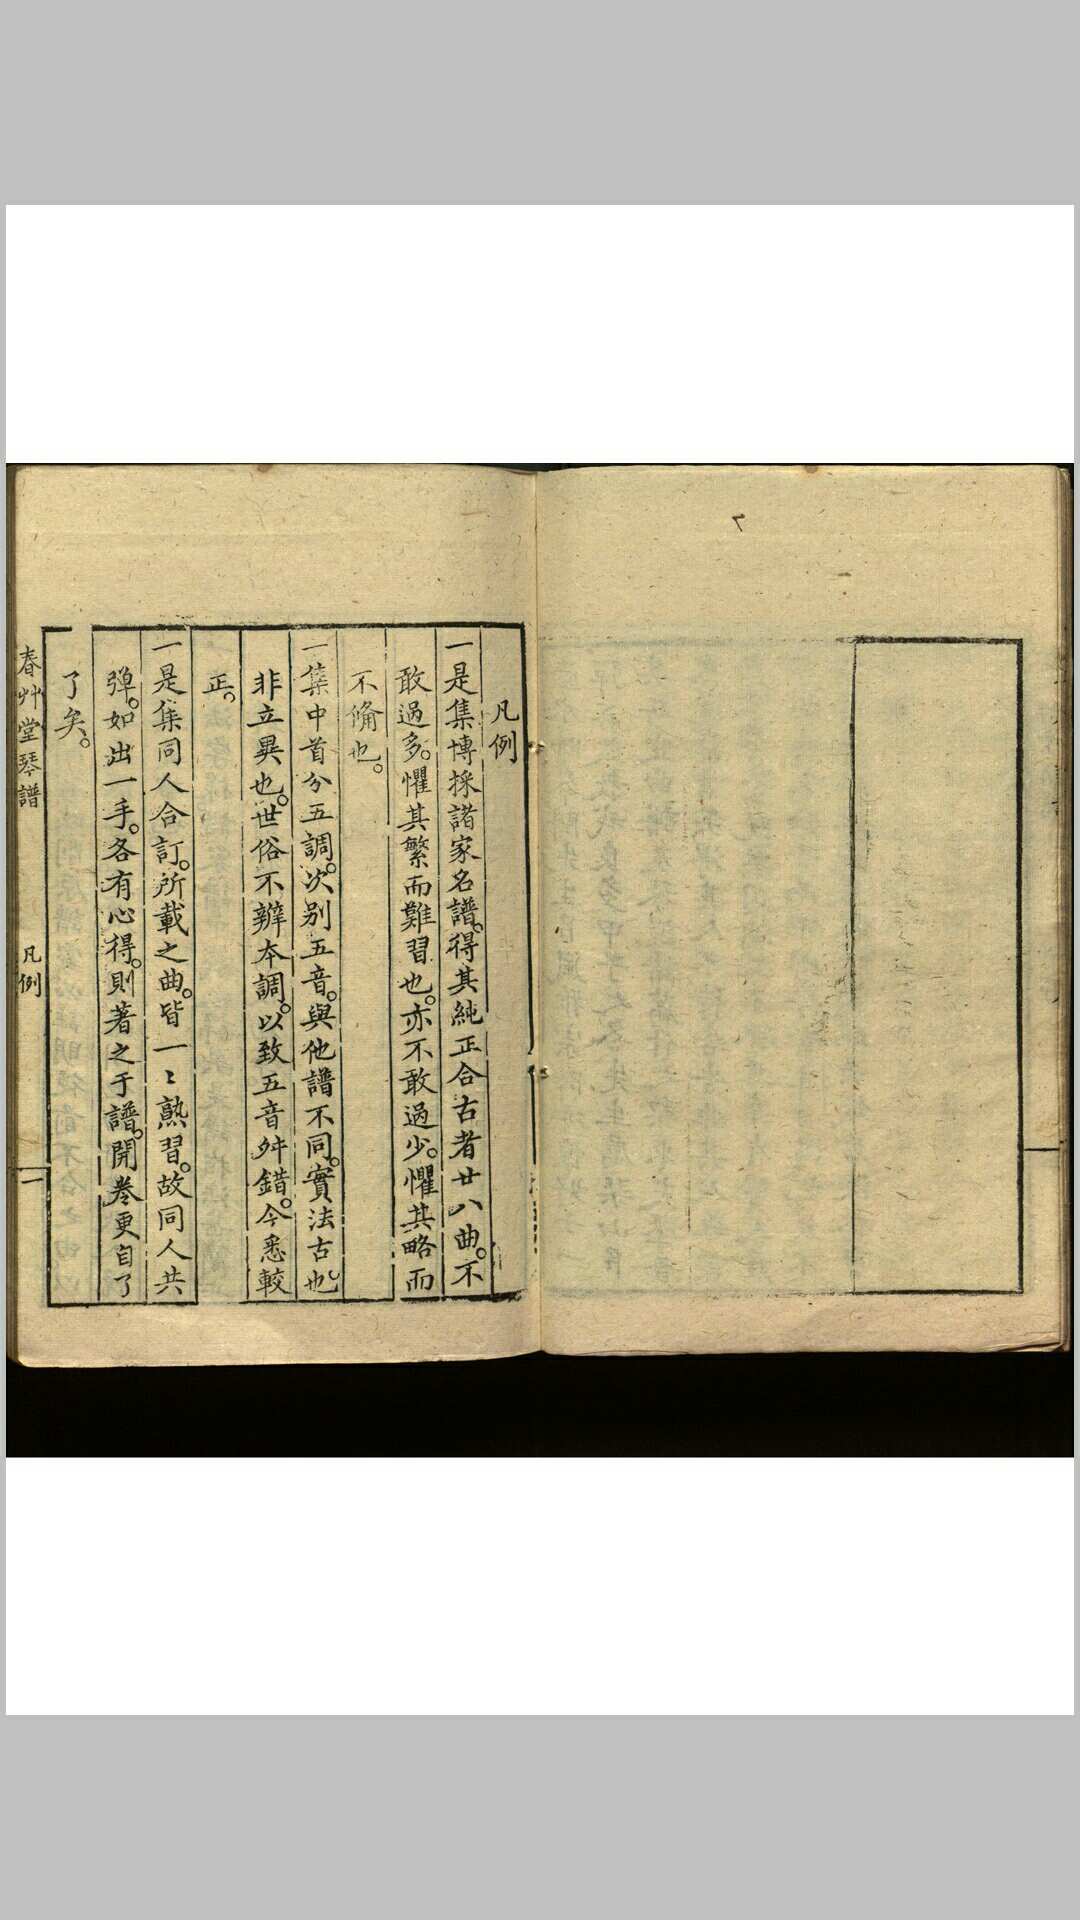 凡例
一是集博採諸家名譜。得其純正合古者廿八曲。不
敢過多。懼其繁而難習也。亦不敢過少。懼其略而
不脩也。
一集中首分五調。次別五音。與他譜不同。實法古也。
非立異也。世俗不辨本調。以致五音舛錯。今悉較
正。
一是集同人合訂。所載之曲。皆一〻熟習。故同人共
彈。如出一手。各有心得。則著之于譜。開卷更自了
了矣。
春艸堂琴譜
凡例
一